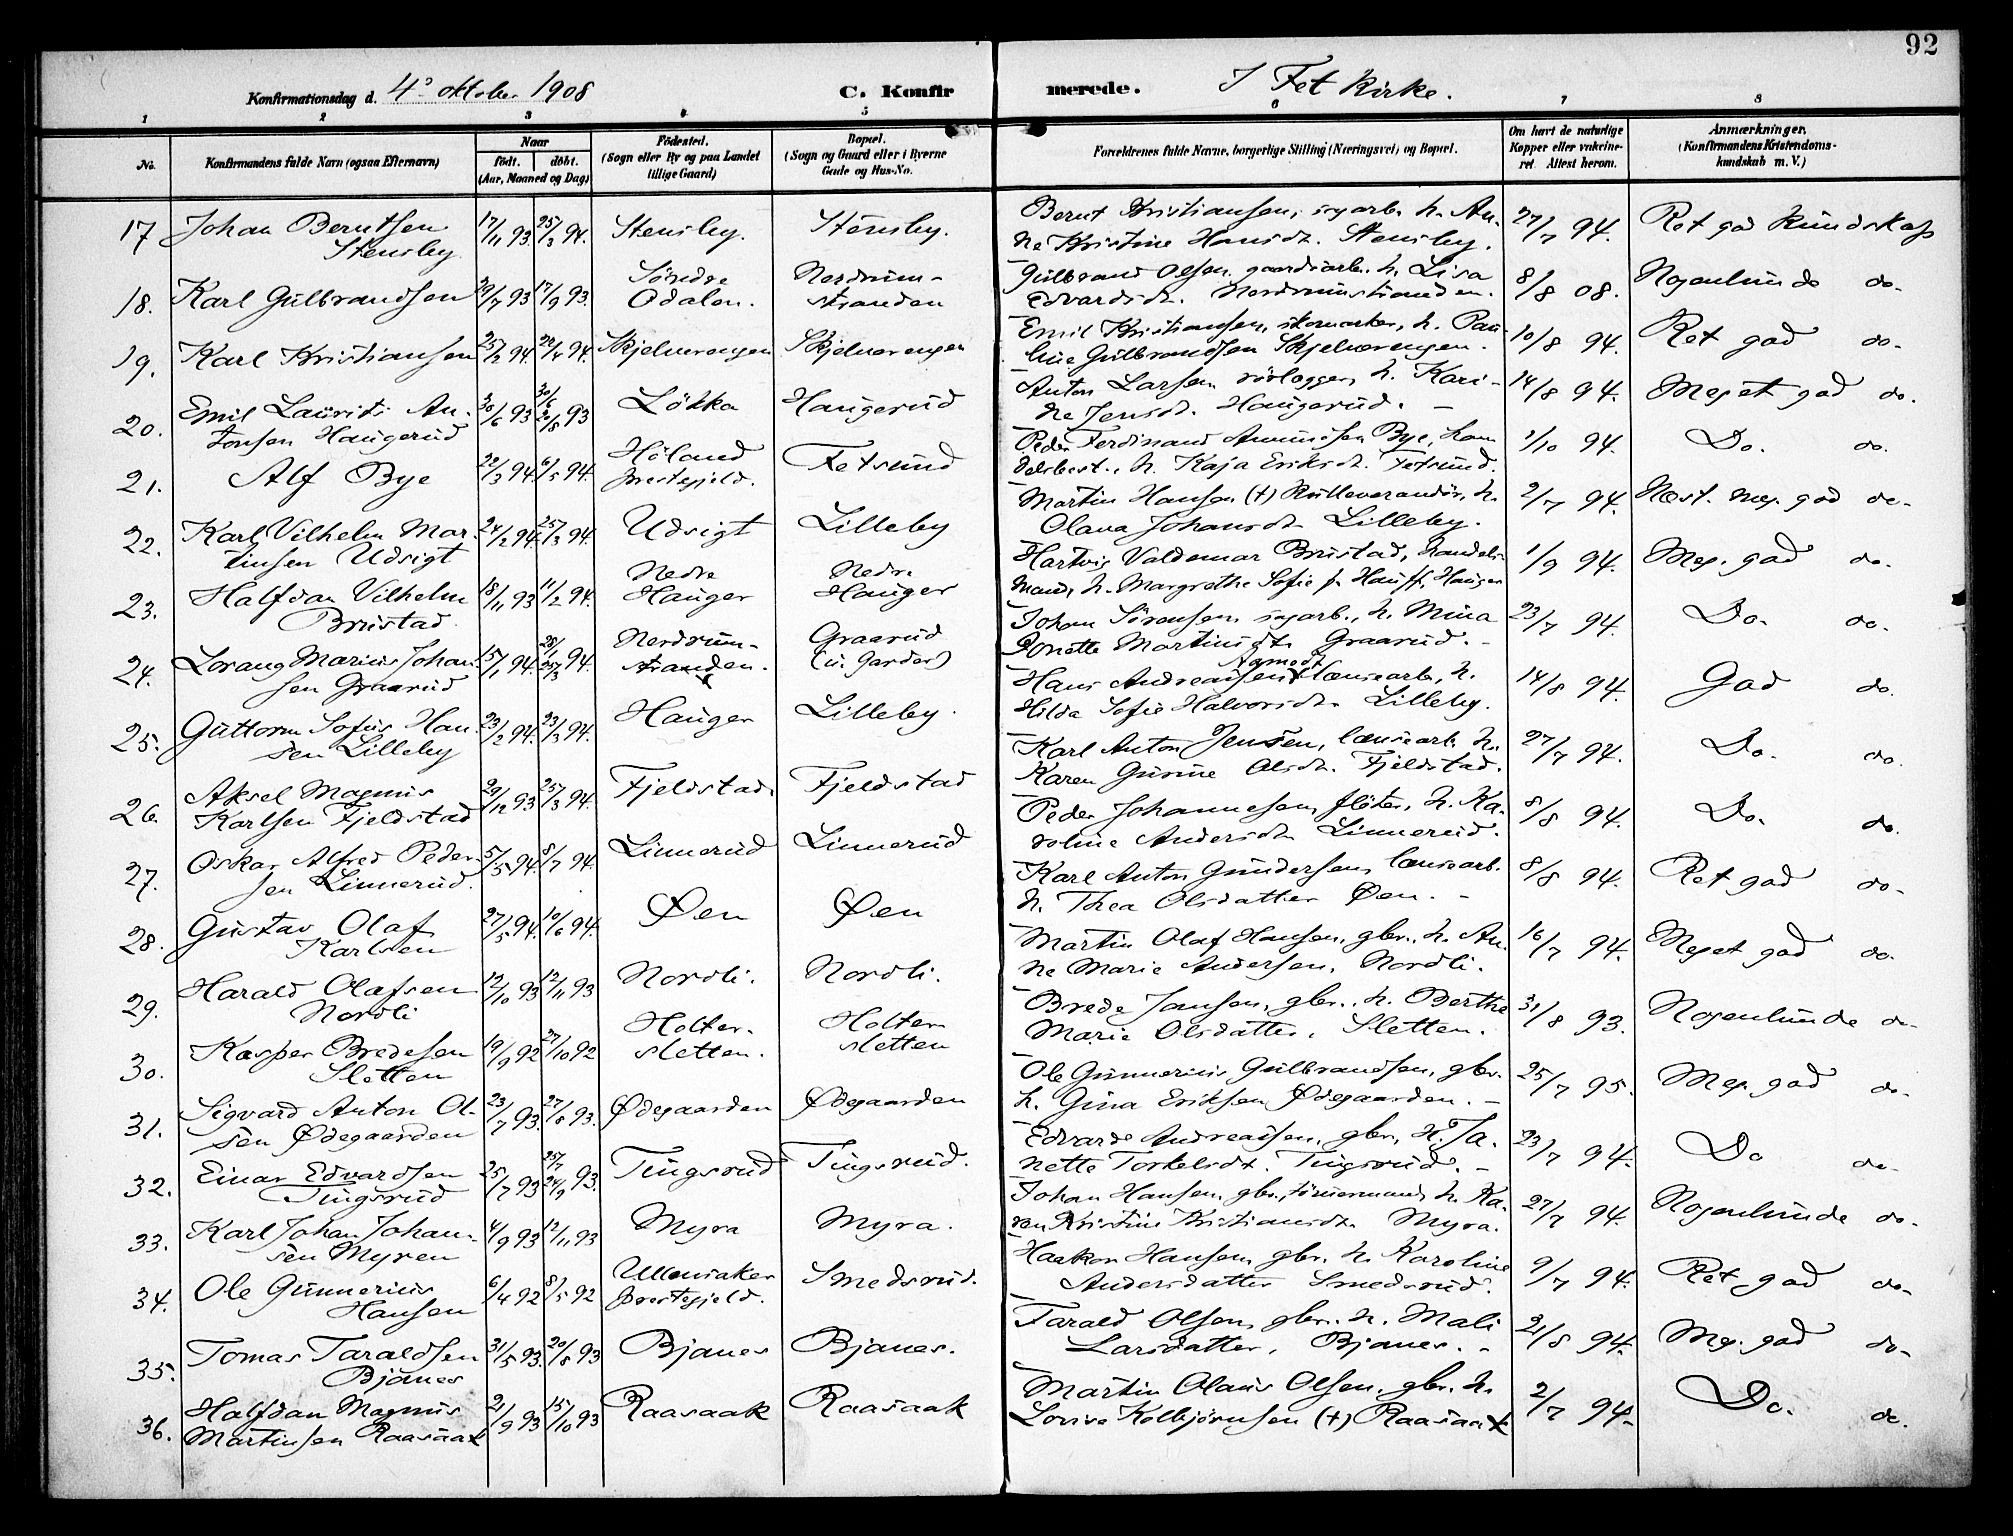 92
Konfirmationsdag d. 4de oktober 1908 C. Konfirmerede. I Fet kirke.
1 2 3 4 5 6 7 8
No. Konfirmandens fulde Navn (ogsaa Efternavn) Naar født. døbt. (Aar, Maaned og Dag) Fødested. (Sogn eller By og paa Landet tillige Gaard) Bopæl. (Sogn og Gaard eller i Byerne Gade og Hus-No. Forældrenes fulde Navne, borgerlige Stilling (Næringsvei) og Bopæl. Om havt de naturlige Kopper eller vakcineret. Attest herom. Anmærkninger. (Konfirmandens Kristendomskundskab m. V.)
17 Johan Berntsen Stensby 17/11 93. 25/3 94. Stensby. Stensby. Bernt Kristiansen, sagarb. h. Anne Kristine Hansdt. Stensby. 27/7 94. Ret god kundskap
18. Karl Gulbrandsen 29/7 93 17/9 93. Søndre Odalen. Nordrum-stranden Gulbrand Olsen, gaardsarb. h. Lisa Edvardsdt. Nordrumstranden. 8/8 08. Nogenlunde do.
19. Karl Kristiansen 25/2 94. 22/4 94. Skjelverengen Skjelverengen Emil Kristiansen, skomaker, h. Pauline Gulbrandsen Skjelverengen. 10/8 94. Ret god do.
20. Emil Laurits Antonsen Haugerud 30/6 93 30/6 20/8 93 Løkka Haugerud Anton Larsen rørlegger, h. Karine Jensdt. Haugerud. 14/8 94. Meget god do.
21. Alf Bye 22/3 94. 6/5 94. Høland prestegjeld. Fetsund Peder Ferdinand Amundsen Bye, handelsbest., h. Kaja Eriksdt. Fetsund. 1/10 94. Do. do.
22. Karl Vilhelm Martinsen Udsigt 24/2 94. 25/3 94. Udsigt Lilleby Martin Hansen (†) h. Olava Johansdt. Lilleby. 2/7 94. Næst. meg. god do.
23. Halfdan Vilhelm Brustad 18/11 93 11/2 94. Nedre Hauger Nedre Hauger Hartvig Valdemar Brustad, handelsmand, h. Margrethe Sofie f. Hauff, Hauger 1/9 94. Meg. god do.
24. Lorang Marius Johansen Graarud 15/1 94. 28/1 25/3 94. Nordrum-stranden. Graarud (u. Garder) Johan Sørensen sagarb., h. Mina Bonette Martinusdt. Graarud. 23/7 94. Do. do.
25. Guttorm Sofus Hansen Lilleby 23/2 94. 23/3 94. Hauger Lilleby. Hans Andreassen Aamodt lænsearb., h. Hilda Sofie Halvorsdt. Lilleby. 14/8 94. God do.
26. Aksel Magnus Karlsen Fjeldstad 29/12 93 25/3 94. Fjeldstad. Fjeldstad Karl Anton Jensen, lænsearb. h. Karen Gurine Olsdt. Fjeldstad. 27/7 94. Do. do.
27. Oskar Alfred Pedersen Linnerud. 5/5 94. 8/7 94. Linnerud Linnerud Peder Johannesen, fløter, h. Karoline Andersdt. Linnerud. 8/8 94. Do. do.
28. Gustav Olaf Karlsen 27/5 94. 10/6 94. Øen Øen Karl Anton Gundersen, lænsearb. h. Thea Olsdatter Øen. 8/8 94. Ret god do.
29. Harald Olafsen Nordli 12/10 93 12/11 93 Nordli. Nordli. Martin Olaf Hansen, gbr., h. Anne Marie Andersen, Nordli. 16/7 94. Meget god do.
30. Kasper Bredesen Sletten 19/9 92 27/10 92 Holter-sletten. Holter sletten Brede Jansen, gbr., h. Berthe Marie Olsdatter, Sletten. 31/8 93. Nogenlunde do.
31. Sigvard Anton Olsen Ødegaarden 23/7 93. 27/8 93. Ødegaarden Ødegaarden Ole Gunnerius Gulbrandsen, gbr. h. Gina Eriksen Ødegaarden. 25/7 95. Meg. god do.
32. Einar Edvardsen Tingsrud 25/7 93 25/7 24/9 93. Tingsrud Tingsrud. Edvard Andreassen, gbr., h. Janette Torkelsdt. Tingsrud. 23/7 94. Do do.
33. Karl Johan Johansen Myren 4/9 93 12/11 93 Myra Myra. Johan Hansen, gbr., tømmermand, h. Karen Kristine Kristiansdt. Myra. 27/7 94. Nogenlunde do.
34. Ole Gunnerius Hansen 6/4 92 8/5 92 Ullensaker prestegjeld. Smedsrud. Haakon Hansen, gbr. h. Karoline Andersdatter Smedsrud. 9/7 94. Ret god do.
35. Tomas Taraldsen Bjanes 31/5 93. 20/8 93 Bjanes Bjanes. Tarald Olsen, gbr. h. Mali Larsdatter, Bjanes. 21/8 94. Meg. god do.
36. Halfdan Magnus Martinsen Raasaak 21/9 93 15/10 93 Raasaak Raasaak Martin Olaus Olsen, gbr. h. Lovise Kolbjørnsen (†) Raasaak 2/7 94. Do. do.